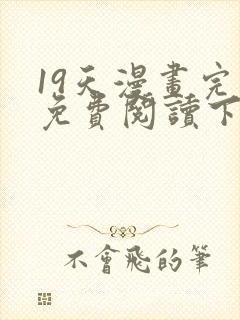 19天漫畫完
免費閱讀下
不會飛的筆